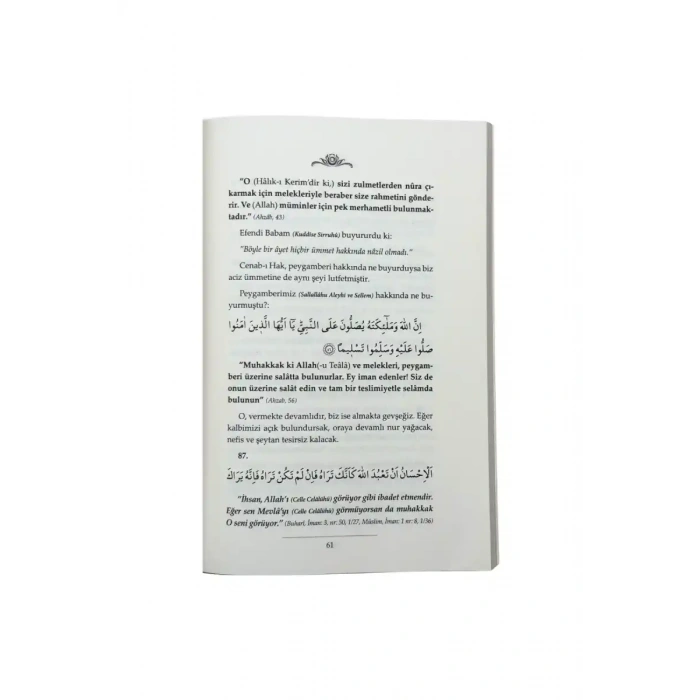 "O (Hâlık-ı Kerim'dir ki,) sizi zulmetlerden nûra çı-
karmak için melekleriyle beraber size rahmetini gönde-
rir. Ve (Allah) müminler için pek merhametli bulunmak-
tadır." (Ahzâb, 43)
Efendi Babam (Kuddise Sirruhû) buyururdu ki:
"Böyle bir âyet hiçbir ümmet hakkında nâzil olmadı."
Cenab-ı Hak, peygamberi hakkında ne buyurduysa biz
aciz ümmetine de aynı şeyi lutfetmiştir.
Peygamberimiz (Sallallâhu Aleyhi ve Sellem) hakkında ne bu-
yurmuştu?:
اِنَّ اللهَ وَمَلٰٓئِكَتَهُ يُصَلُّونَ عَلَى النَّبِيِّۜ يَٓا اَيُّهَا الَّذٖينَ اٰمَنُوا
صَلُّوا عَلَيْهِ وَسَلِّمُوا تَسْلٖيمًا ﴿٥٦﴾
"Muhakkak ki Allah(-u Teâlâ) ve melekleri, peygam-
beri üzerine salâtta bulunurlar. Ey iman edenler! Siz de
onun üzerine salât edin ve tam bir teslimiyetle selâmda
bulunun" (Ahzab, 56)
O, vermekte devamlıdır, biz ise almakta gevşeğiz. Eğer
kalbimizi açık bulundursak, oraya devamlı nur yağacak,
nefis ve şeytan tesirsiz kalacak.
87.
اَلْاِحْسَانُ اَنْ تَعْبُدَ اللهَ كَاَنَّكَ تَرَاهُ فَاِنْ لَمْ تَكُنْ تَرَاهُ فَاِنَّهُ يَرَاكَ
"İhsan, Allah'ı (Celle Celâlühû) görüyor gibi ibadet etmendir.
Eğer sen Mevlâ'yı (Celle Celâlühû) görmüyorsan da muhakkak
O seni görüyor." (Buharî, İman: 5, nr: 50, 1/27, Müslim, İman: 1 nr: 8, 1/36)
61